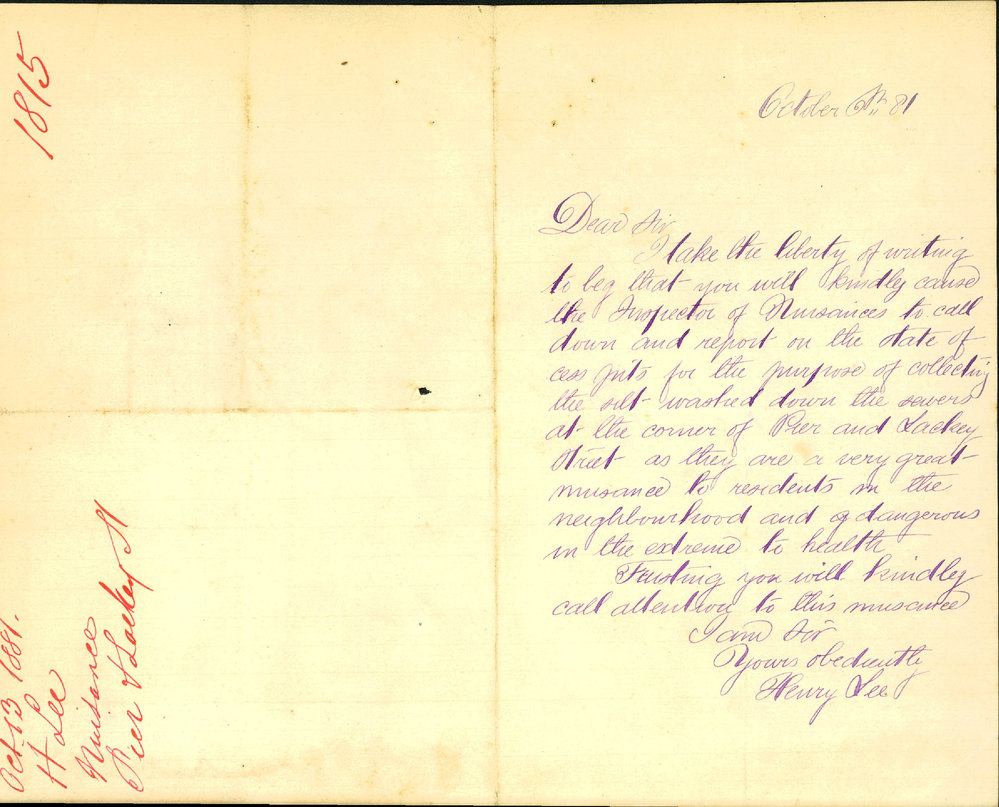 1815
Oct 13 1881.
H Lee
Nuisance
Pier & Lackey St
October 81
Dear Sir
I take the liberty of writing
to beg that you will kindly cause
the Inspector of Nuisances to call
down and report on the state of
cess pits for the purpose of collecting
the silt washed down the sewers
at the corner of Pier and Lackey
Street as they are a very great
nuisance to residents in the
neighbourhood and dangerous
in the extreme to health
Trusting you will kindly
call attention to this nuisance
I am Sir
Yours obediently
Henry Lee